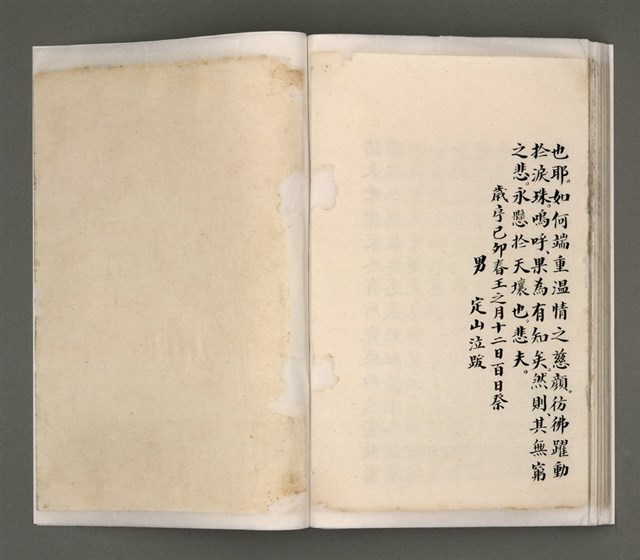 也耶。如何端重温情之慈顏。彷彿躍動
於淚珠。嗚呼、果為有知矣。然則、其無窮
之悲。永懸於天壤也。悲夫。
歲序己卯春王之月十二日百日祭
男 定山泣跋